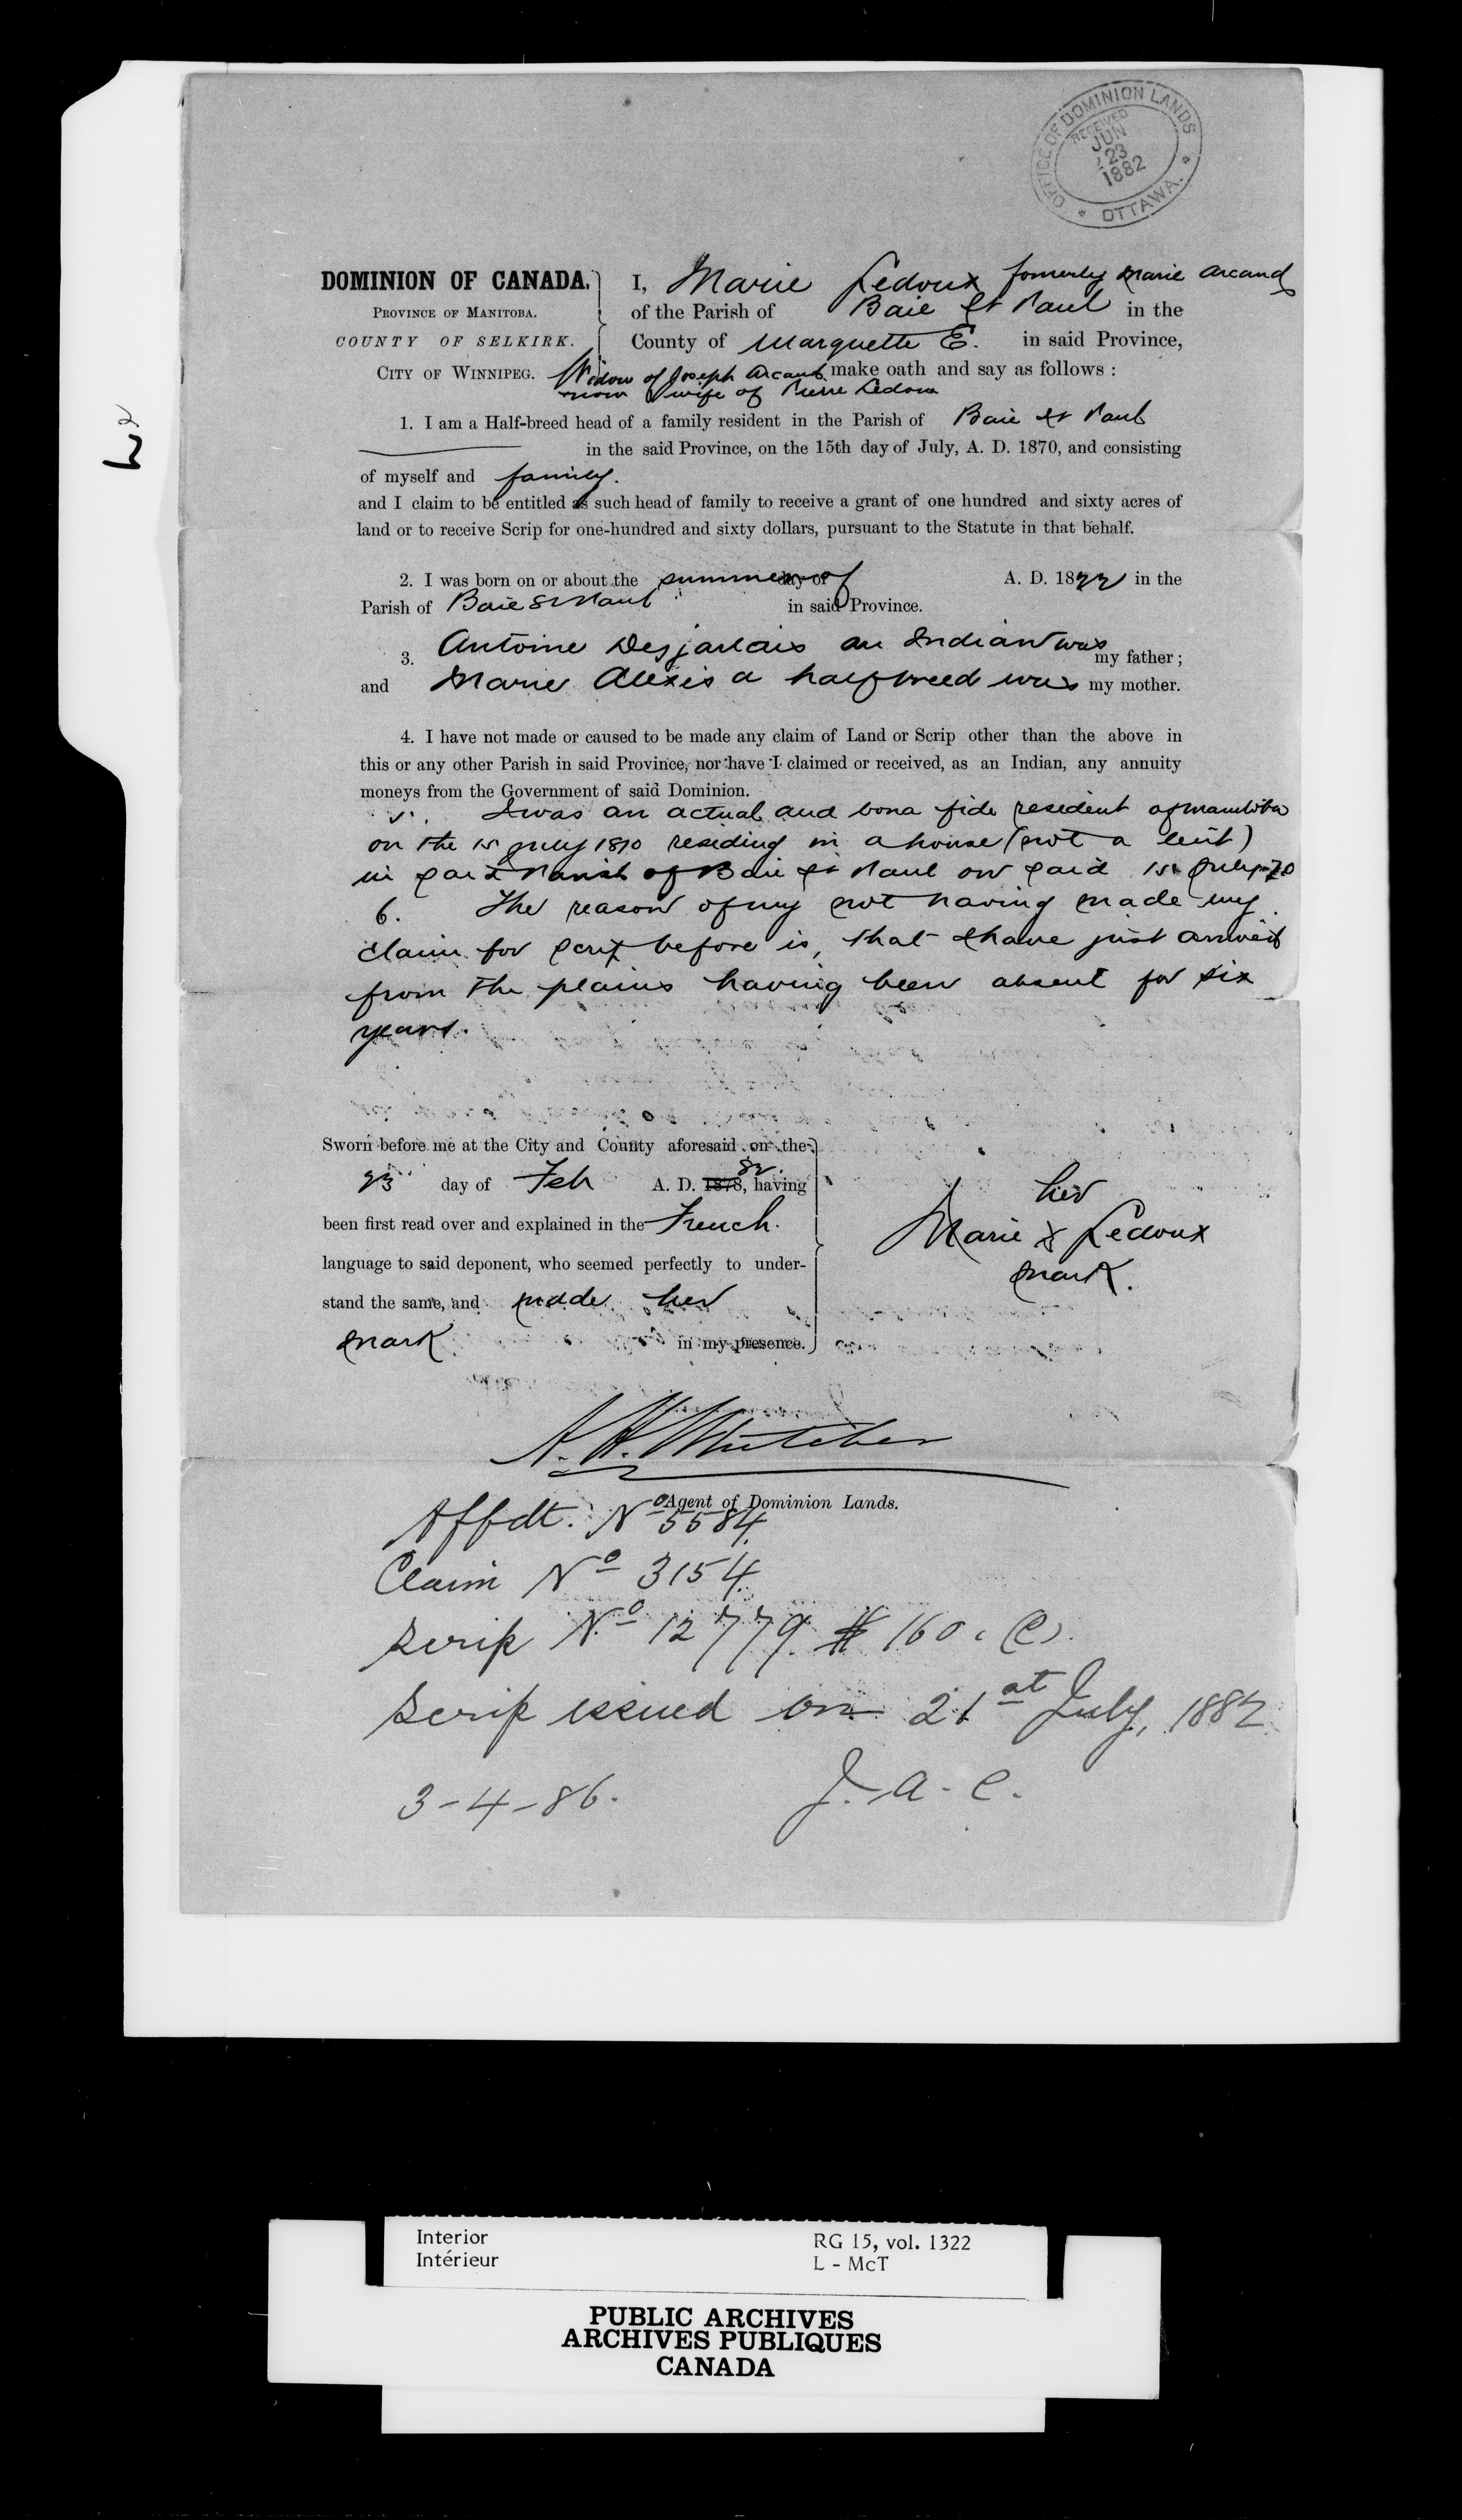 OFFICE OF DOMINION LANDS
RECEIVED
JUN
23
1882
* OTTAWA. *
DOMINION OF CANADA.
PROVINCE OF MANITOBA.
COUNTY OF SELKIRK.
CITY OF WINNIPEG.
I, Marie Ledoux formerly Marie Arcand
of the Parish of Baie St Paul in the
County of Marquette E. in said Province,
Widow of Joseph Arcand make oath and say as follows :
now wife of Pierre Ledoux
1. I am a Half-breed head of a family resident in the Parish of Baie St Paul
in the said Province, on the 15th day of July, A. D. 1870, and consisting
of myself and family.
and I claim to be entitled as such head of family to receive a grant of one hundred and sixty acres of
land or to receive Scrip for one-hundred and sixty dollars, pursuant to the Statute in that behalf.
2. I was born on or about the summer of day of A. D. 1822 in the
Parish of Baie St Paul in said Province.
3. Antoine Desjarlais an Indian was my father ;
and Marie Alexis a halfbreed was my mother.
4. I have not made or caused to be made any claim of Land or Scrip other than the above in
this or any other Parish in said Province, nor have I claimed or received, as an Indian, any annuity
moneys from the Government of said Dominion.
5. I was an actual and bona fide resident of Manitoba
on the 15 July 1870 residing in a house (not a tent)
in said Parish of Baie St Paul on said 15 July 70
6. The reason of my not having made my
claim for scrip before is, that I have just arrived
from the plains having been absent for six
years.
Sworn before me at the City and County aforesaid on the
23 day of Feb A. D. 1878, 82. having
been first read over and explained in the French.
language to said deponent, who seemed perfectly to under-
stand the same, and made her
mark in my presence.
her
Marie X Ledoux
mark.
A. H. Whitcher
Agent of Dominion Lands.
Affdt. No 5584.
Claim No 3154.
Scrip No 12779. $160. (C).
Scrip issued on 21st July, 1882
3-4-86. J. A. C.
Interior
Intérieur
RG 15, vol. 1322
L - McT
PUBLIC ARCHIVES
ARCHIVES PUBLIQUES
CANADA